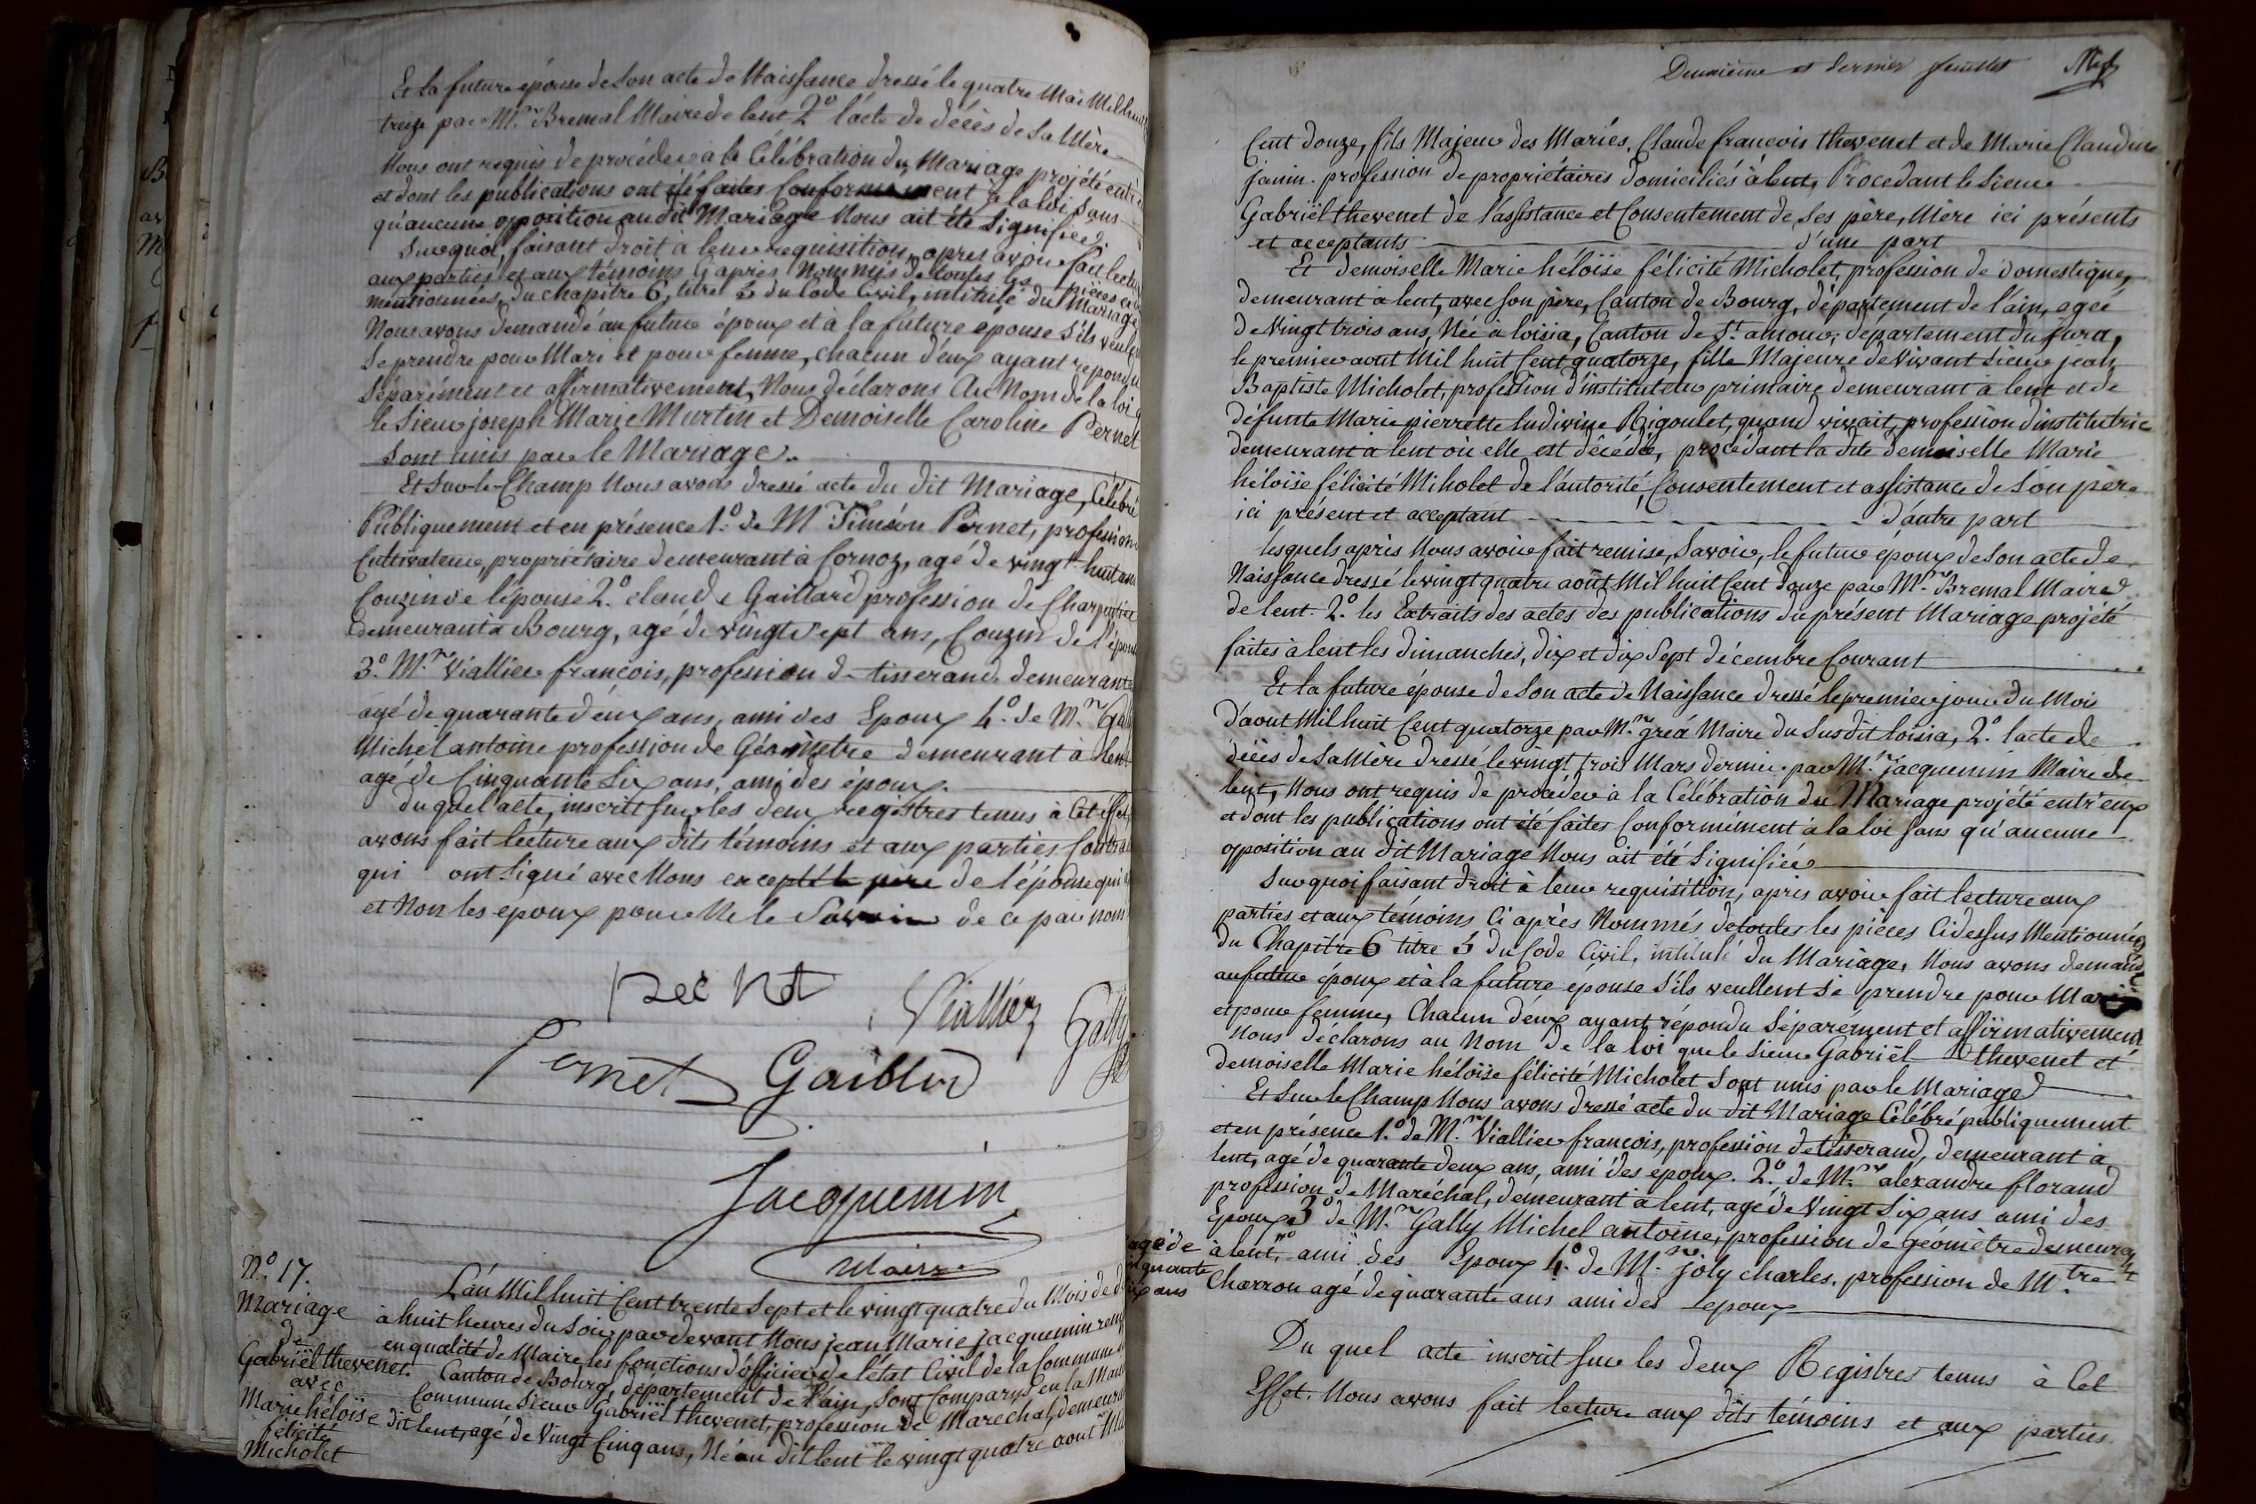 Et la future épouse de son acte de Naissance dressé le quatre Mai Mil huit
treize par M.r Bremal Maire de lent 2.o l'acte de décès de sa Mère
Nous ont requis de procéder à la Célébration du Mariage projété
et dont les publications ont été faites Conformément à la loi sans
qu'aucune opposition au dit Mariage Nous ait été Signifiée.
Sur quoi, faisant droit à leur requisition, apres avoir fait lecture
aux parties et aux témoins Ci après Nommés de toutes les pièces
mentionnées, du chapitre 6, titre 5 du Code Civil, intitulé du Mariage
Nous avons demandé au futur époux et à la future épouse S'ils veulent
Se prendre pour Mari et pour femme, chacun d'eux ayant repondu
Séparément et affirmativement, Nous déclarons Au Nom de la loi
le Sieur joseph Marie Murtin et Demoiselle Caroline Pernet
Sont unis par le Mariage.
Et Sur-le-Champ Nous avons dressé acte du dit Mariage, Célébré
Publiquement et en présence 1.o de M.r Siméon Pernet, profession
Cultivateur, propriétaire demeurant à Cornoz, agé de vingt huit ans
Couzin de l'épouse 2.o claude Gaillard profession de Charpentier
demeurant à Bourg, agé de vingt Sept ans, Couzin de l'épouse
3.o M.r Viallier françois, profession de tisserand demeurant
agé de quarante deux ans, ami des Epoux 4.o de M.r Gally
Michel antoine profession de Géomètre demeurant à lent
agé de Cinquante Six ans, ami des époux.
du quel acte, inscrit sur les deux registres tenus à Cet effet
avons fait lecture aux dits témoins et aux parties
qui ont Signé avec Nous excepté le père de l'épouse qui
et Non les epoux pour Ne le Savoir de ce par nous
Viallier
Pernet Gaillard Gally
Jacquemin
Maire
N.o 17.
Mariage
de
Gabriël thevenet
avec
Marie héloïse
félicité
Micholet
L'an Mil huit Cent trente Sept et le vingt quatre du Mois de
à huit heures du Soir, par devant Nous jean Marie jacquemin
en qualité de Maire, les fonctions d'officier de l'état Civil de la Commune
Canton de Bourg, département de l'ain, Sont Comparus en la
Commune Sieur Gabriël thevenet, profession de Maréchal, demeurant
dit lent, agé de Vingt Cinq ans, Né au dit lent le vingt quatre aout Mil
Deuxième et dernier feuillet
Cent douze, fils Majeur des Mariés, Claude françois thevenet et de Marie Claudine
janin. profession de propriétaires domiciliés à lent, Procedant le Sieur
Gabriël thevenet de l'assistance et Consentement de Ses père, Mère ici présents
et acceptants d'une part
Et demoiselle Marie héloïse félicité Micholet, profession de domestique,
demeurant à lent, avec son père, Canton de Bourg, département de l'ain, agée
de Vingt trois ans, Née à loisia, Canton de St. amour, département du jura,
le premier aout Mil huit Cent quatorze, fille Majeure de Vivant Sieur jean
Baptiste Micholet, profession d'instituteur primaire demeurant à lent et de
défunte Marie pierrette ludivine Rigoulet, quand vivait, profession d'institutrice
demeurant à lent où elle est décédée, procédant la dite demoiselle Marie
héloïse félicité Miholet de l'autorité, Consentement et assistance de Son père
ici présent et acceptant d'autre part
lesquels après Nous avoir fait remise, Savoir, le futur époux de Son acte de
Naissance dressé le vingt quatre août Mil huit Cent douze par M.r Bremal Maire
de lent. 2.o les Extraits des actes des publications du présent Mariage projété
faites à lent les dimanches, dix et dix Sept décembre Courant
Et la future épouse de Son acte de Naissance dressé le premier jour du Mois
d'aout Mil huit Cent quatorze par M.r gréa Maire du Susdit loisia, 2.o l'acte de
décès de Sa Mère dressé le vingt trois Mars dernier par M.r jacquemin Maire de
lent, Nous ont requis de procéder à la Célébration du Mariage projété entr'eux
et dont les publications ont été faites Conformément à la loi Sans qu'aucune
opposition au dit Mariage Nous ait été Signifiée
Sur quoi faisant droit à leur requisition, après avoir fait lecture aux
parties et aux témoins Ci après Nommés de toutes les pièces Ci dessus Mentionnées
du Chapitre 6 titre 5 du Code Civil, intitulé du Mariage, Nous avons demandé
au futur époux et à la future épouse S'ils veullent Se prendre pour Mari
et pour femme, Chacun d'eux ayant répondu Séparément et affirmativement
Nous déclarons au Nom de la loi que le Sieur Gabriël thevenet et
demoiselle Marie héloïse félicité Micholet Sont unis par le Mariage
Et Sur le Champ Nous avons dressé acte du dit Mariage Célébré publiquement
et en présence 1.o de M.r Viallier françois, profession de tisserand, demeurant à
lent, agé de quarante deux ans, ami des époux. 2.o de M.r alexandre florand
profession de Maréchal, demeurant à lent, agé de Vingt Six ans ami des
Epoux 3.o de M.r Gally Michel antoine, profession de géomètre demeurant
agé de
à lent, ami des Epoux 4.o de M.r joly charles, profession de M.tre
Charron agé de quarante ans ami des epoux
Du quel acte inscrit Sur les deux Registres tenus à Cet
Effet. Nous avons fait lecture aux dits témoins et aux parties